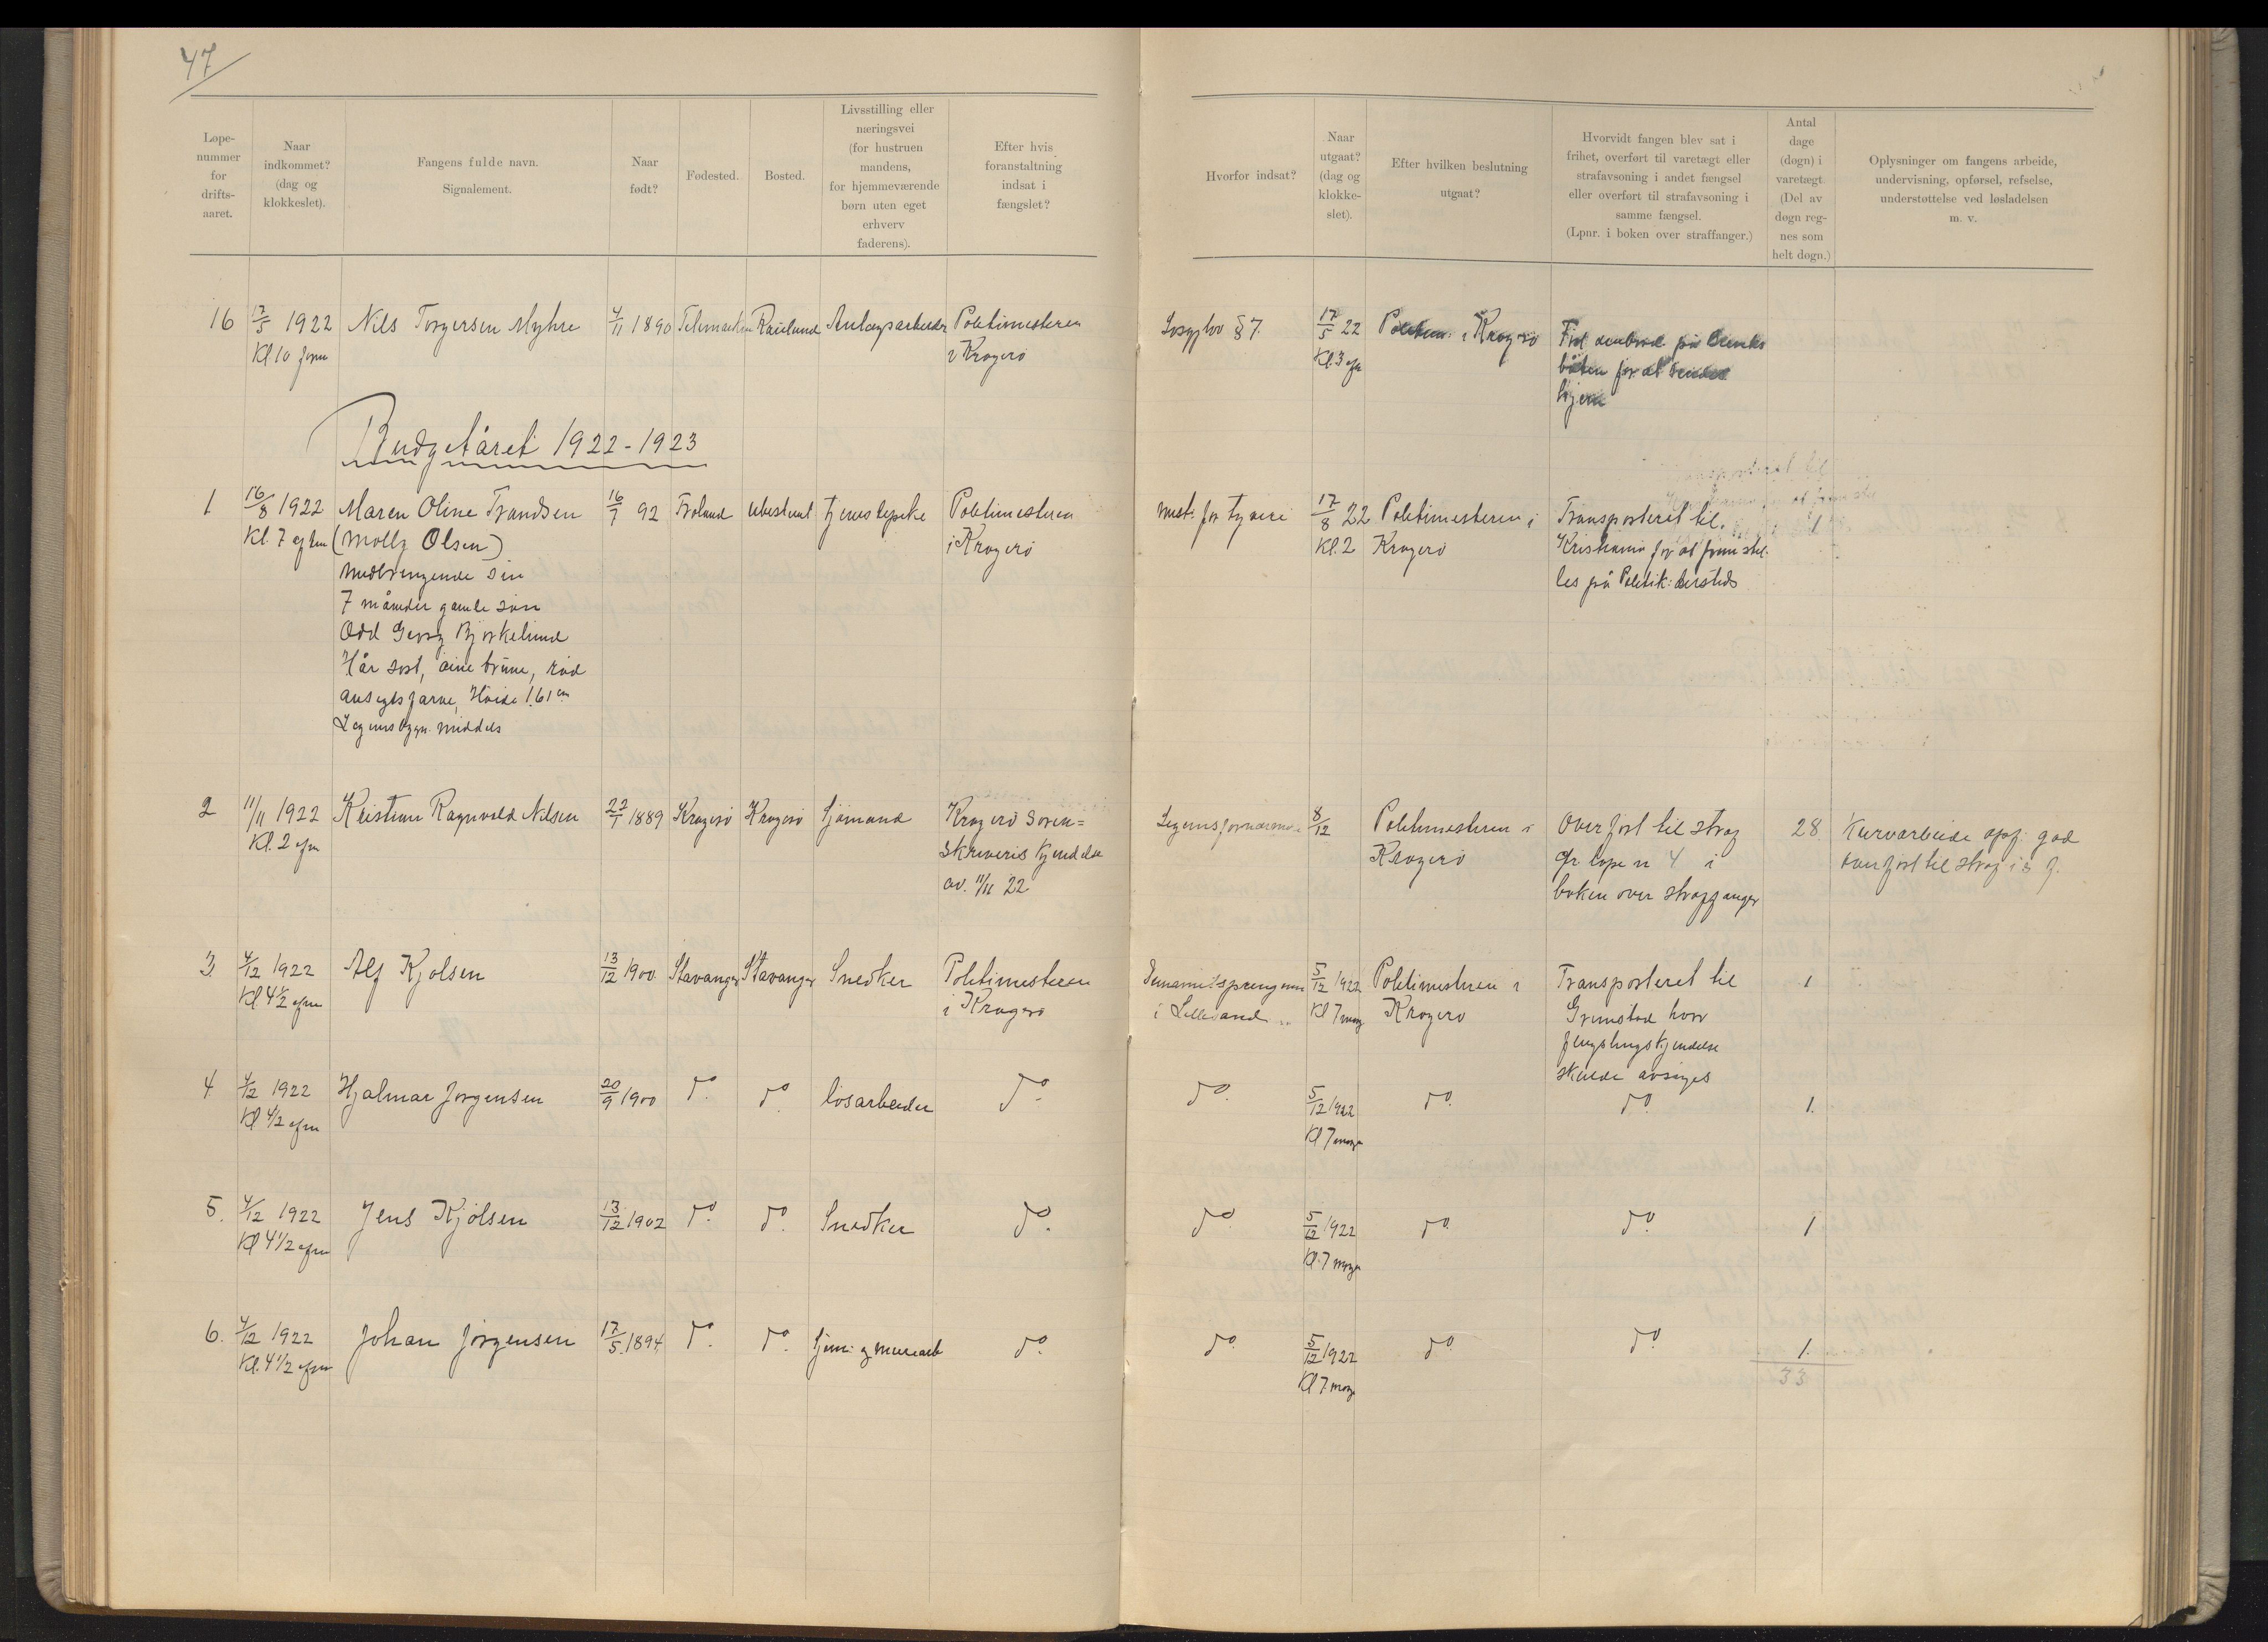 47
Løpe-
nummer
for
drifts-
aaret.
Naar
indkommet?
(dag og
klokkeslet).
Fangens fulde navn.
Signalement.
Naar
født?
Fødested.
Bosted.
Livsstilling eller
næringsvei
(for hustruen
mandens,
for hjemmeværende
børn uten eget
erhverv
faderens).
Efter hvis
foranstaltning
indsat i
fængslet?
Hvorfor indsat?
Naar
utgaat?
(dag og
klokke-
slet).
Efter hvilken beslutning
utgaat?
Hvorvidt fangen blev sat i
frihet, overført til varetægt eller
strafavsoning i andet fængsel
eller overført til strafavsoning i
samme fængsel.
(Lpnr. i boken over straffanger.)
Antal
dage
(døgn) i
varetægt.
(Del av
døgn reg-
nes som
helt døgn.)
Oplysninger om fangens arbeide,
undervisning, opførsel, refselse,
understøttelse ved løsladelsen
m. v.
16 17/5 1922 Nils Torgersen Myhre 4/11 1890 Telemarken Rauland Anlægsarbeider Politimesteren Løsgjlov § 7. 17/5 22 i Kragerø
Kl 10 form i Kragerø Kl. 3 efm
Budgetåret 1922-1923
1 16/8 1922 Maren Oline Trandsen 16/7 92 Froland ubestemt tjenestepike Politimesteren mist. for tyveri 17/8 22 Politimesteren i Transporteret til 1
Kl. 7 eftm (Molly Olsen) i Kragerø Kl. 2 Kragerø Kristiania for at fremstil-
medbringende sin les på Politik:
7 måneder gamle søn
Odd Georg Bjørkelund
Hår sort, øine brune, rød
ansigtsfarve, Høide 1.61 cm
Legemsbygn. middels
2 11/11 1922 Kristian Ragnvald Nilsen 22/7 1889 Kragerø Kragerø Sjømand Kragerø Soren= 8/12 Politimesteren i Overført til straf 28 Kurvarbeide opf: god
Kl. 2 efm skriveris kjendelse Kragerø løpe n 4 i overført til straf i s f.
av. 11/11 22 boken over straffanger
3. 4/12 1922 Alf Kjølsen 13/12 1900 Stavanger Stavanger Snedker Politimesteren 5/12 1922 Politimesteren i Transporteret til 1
Kl 4 1/2 efm i Kragerø i Lillesand Kl 7 morg Kragerø Grimstad hvor
fengslingskjendelse
skulde avsiges
4 4/12 1922 Hjalmar Jørgensen 20/9 1900 do. do. løsarbeider do. do. 5/12 1922 do. do. 1.
Kl 4 1/2 efm Kl 7 morg
5. 4/12 1922 Jens Kjølsen 13/12 1902 do. do. Snedker do. do. 5/12 1922 do. do. 1
Kl 4 1/2 efm Kl. 7 morg
6. 4/12 1922 Johan Jørgensen 17/5. 1894 do. do. do. do. 5/12 1922 do. do. 1.
Kl. 4 1/2 efm Kl 7 morg 33